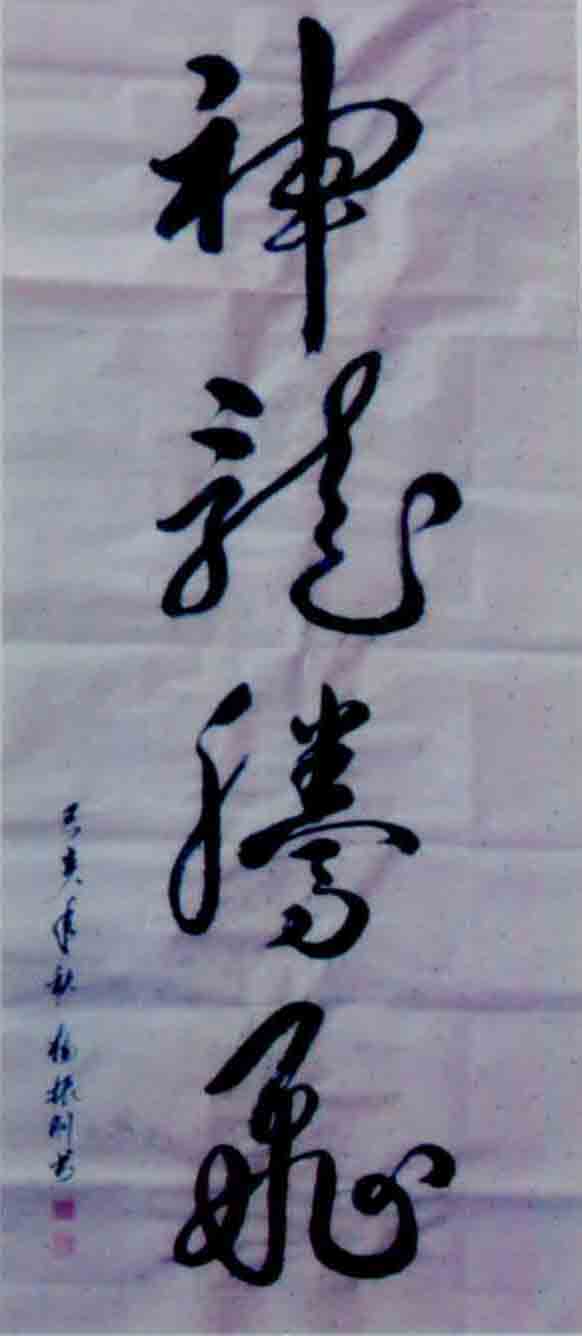 神龍騰飛
己亥年秋 楊振刚书